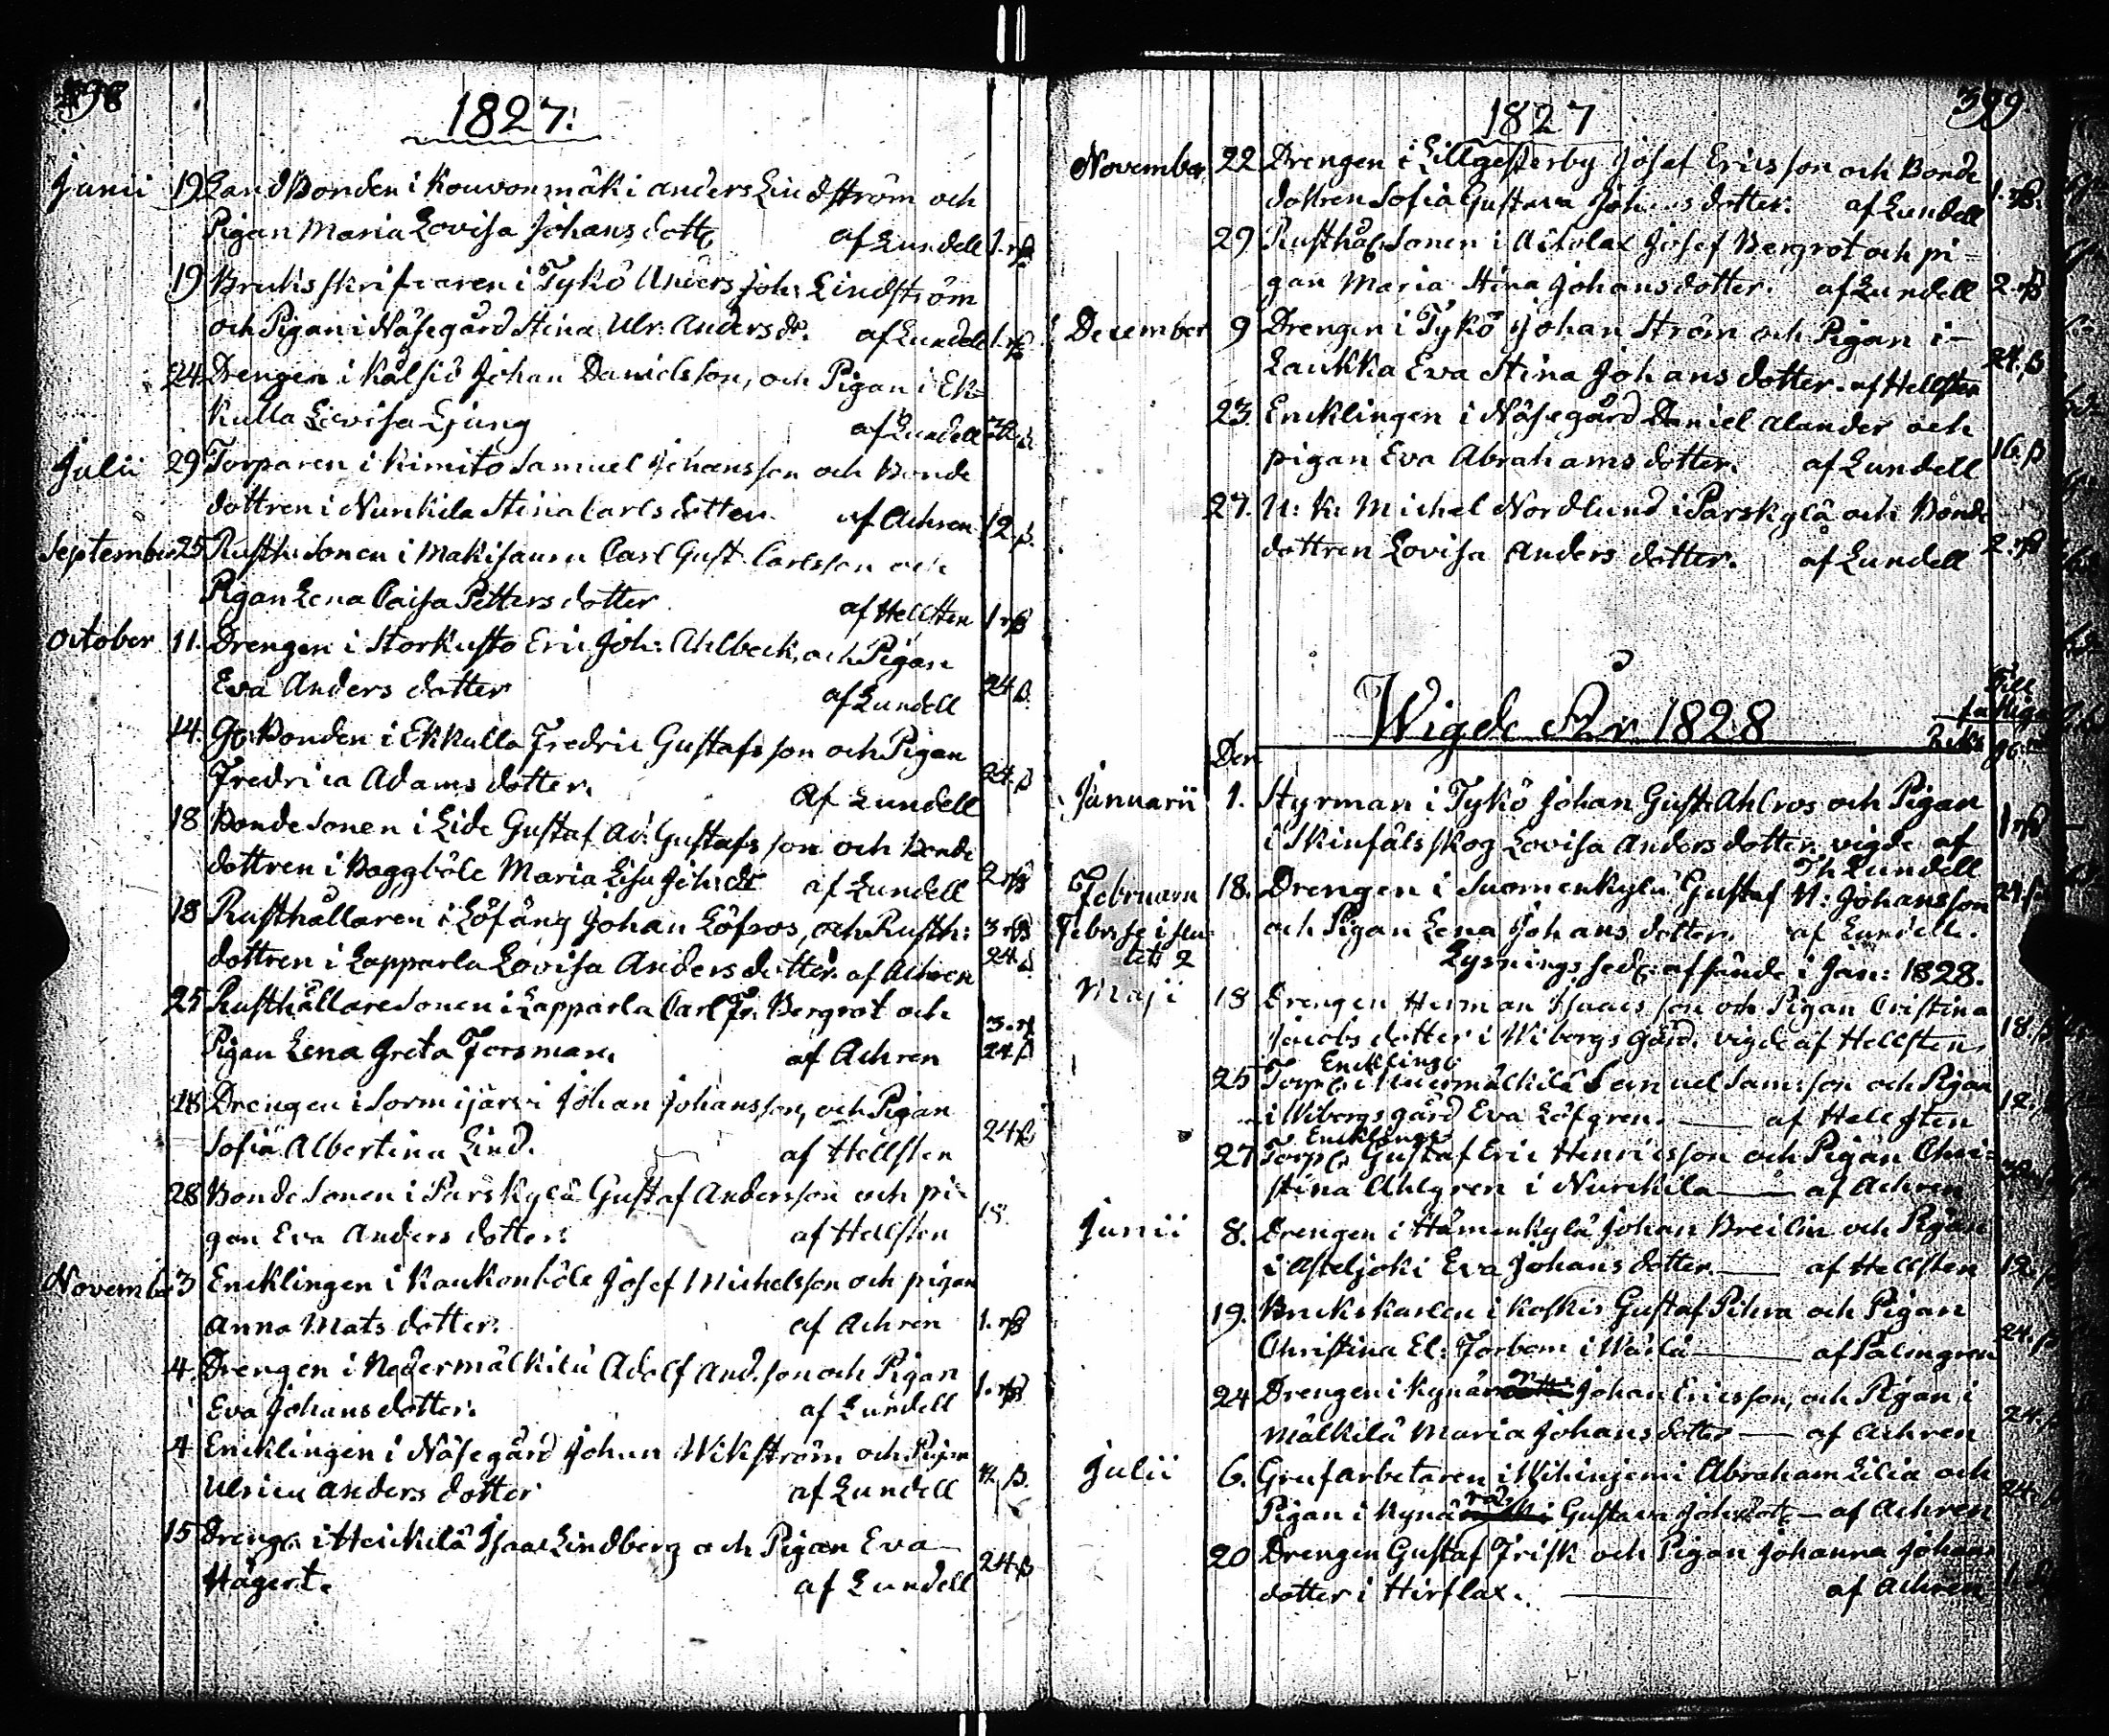 398
1827.
Junii 19 Landbonden i Kouvonmäki Anders Lindström och
Pigan Maria Lovisa Johans dott. af Lundell 1. rß
19 Bruksskrifvaren i Tykö Anders Joh: Lindström
och Pigan i Näsegård Stina Ulr. Anders dr. af Lundell 1. rß
24 Drengen i Kälsiö Johan Danielsson, och Pigan i Ek=
kulla Lovisa Ljung af Lundell
Julii 29 Torparen i Kimito Samuel Johansson och Bonde
dottren i Nurkila Stina Carls dotter. af Achren 12. ß.
September 25 Rusth. Sonen i Makisauru Carl Gust. Carlsson och
Pigan Lena Caisa Petters dotter af Hellsten 1 rß
October 11. Drengen i Storkusto Eric Joh: Ahlbeck, och Pigan
Eva Anders dotter af Lundell 24 ß.
14. Bonden i Ekkulla Fredric Gustafsson och Pigan
Fredrica Adams dotter. af Lundell 24. ß
18 Bonde Sonen i Lide Gustaf Ad: Gustafsson och Bonde
dottren i Baggböle Maria Lisa Joh: dr af Lundell 2 rß
18 Rusthållaren i Löfäng Johan Löfroos, och Rusth: 3 rß
dottren i Lapparla Lovisa Anders dotter. af Achren 24. ß
25 Rusthållare Sonen i Lapparla Carl Fr. Bergrot och 3. rß
Pigan Lena Greta Forsman. af Achren 24 ß
28 Drengen i Sormijärvi Johan Johansson, och Pigan
Sofia Albertina Lind. af Hellsten 24 ß
28 Bonde Sonen i Pärskylä Gustaf Andersson och pi-
gan Eva Anders dotter: af Hellsten 18.
November 3 Encklingen i Kaukonböle Josef Michelsson och pigan
Anna Mats dotter. af Achren 1. rß
4. Drengen i Nedermälkilä Adolf And. son och Pigan
Eva Johans dotter. af Lundell 1. rß
4 Encklingen i Näsegård Johan Wikström och Pigan
Ulrica Anders dotter af Lundell 12. ß.
15 Drengen i Heickilä Isaac Lindberg och Pigan Eva
Hägert. af Lundell 24 ß
1827
399
November 22 Drengen i Lillgesterby Josef Ericsson och Bonde
dottren Sofia Gustava Johans dotter. af Lundell 1. rß.
29 Rusthåll. Sonen i Aitolax Josef Bergrot och pi-
gan Maria Stina Johans dotter. af Lundell 2. rß
December 9 Drengen i Tykö Johan Ström och Pigan i
Laukka Eva Stina Johans dotter. af Hellsten 24. ß
23. Encklingen i Näsegård Daniel Alander och
pigan Eva Abrahams dotter. af Lundell 16. ß
27. U: K: Michel Nordlund i Pärskylä och Bonde
dottren Lovisa Anders dotter. af Lundell 2. rß
Wigde År 1828
Till
fattiga
Den
Januarii 1. Styrman i Tykö Johan Gust. Ahlroos och Pigan
i Skinfälsskog Lovisa Anders dotter. vigde af 1 rß
Th Lundell
Februarii 18. Drengen i Suomenkylä Gustaf N: Johansson
och Pigan Lena Johans dotter. af Lundell.
Lysnings sed: afsände i Jan: 1828.
Maji 18 Drengen Herman Isaacs son och Pigan Cristina
Jacobs dotter i Wiborgs gård. vigde af Hellsten. 18. ß
Encklinge
25 Torp. i Nedermälkilä Samuel Sam: son och Pigan
i Wiborgsgård Eva Löfgren. — af Hellsten 12.
Encklinge
27 Torp. Gustaf Eric Henricsson och Pigan Chri-
stina Ahlgren i Nurckila — af Achren
Junii 8. Drengen i Hämenkylä Johan Breilin och Pigan
i Asteljoki Eva Johans dotter. — af Hellsten 12.
19. Brukskarlen i Koskis Gustaf Pihra och Pigan
Christina El: Forbom i Wåilä — af Palmgren 24. ß
24 Drengen i Kynär Johan Ericsson, och Pigan i
Mälkilä Maria Johans dotter — af Achren 24. ß
Julii 6. Grufarbetaren i Wihiniemi Abraham Lilia och
Pigan i Kynä Gustava Joh: dott. — af Achren 24.
20 Drengen Gustaf Frisk och Pigan Johanna Johans
dotter i Hirflax. — af Achren